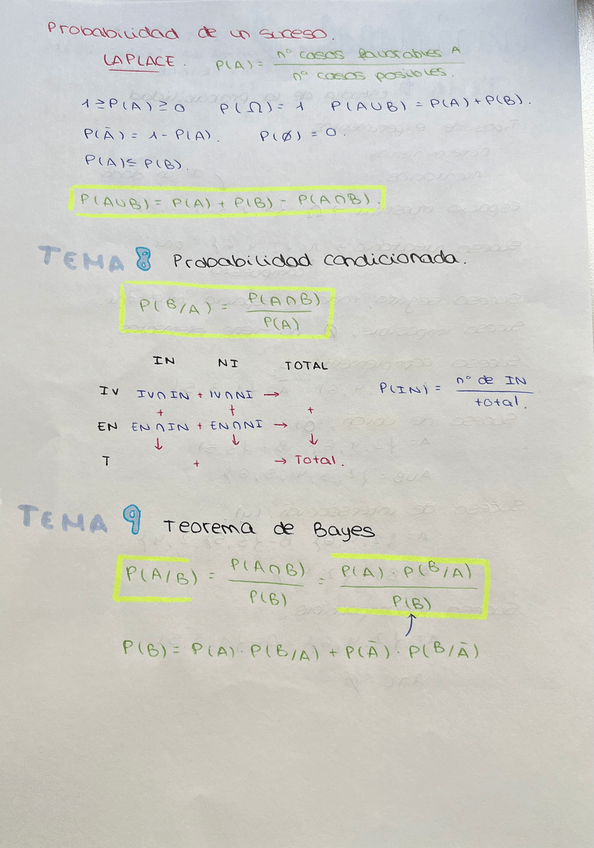 Probabilidad de un suceso.
LAPLACE. P(A) = nº casos favorables A / nº casos posibles.
1 ≥ P(A) ≥ 0 P(Ω) = 1 P(A∪B) = P(A) + P(B).
P(Ā) = 1 - P(A). P(∅) = 0.
P(A) ≤ P(B).
P(A∪B) = P(A) + P(B) - P(A∩B)
TEMA 8 Probabilidad condicionada.
P(B/A) = P(A∩B) / P(A)
IN NI TOTAL
IV IV∩IN + IV∩NI →
P(IN) = nº de IN / total.
+ + +
EN EN∩IN + EN∩NI →
↓ ↓ ↓
T + → Total.
TEMA 9 Teorema de Bayes
P(A/B) = P(A∩B) / P(B) = P(A) · P(B/A) / P(B)
P(B) = P(A) · P(B/A) + P(Ā) · P(B/Ā)